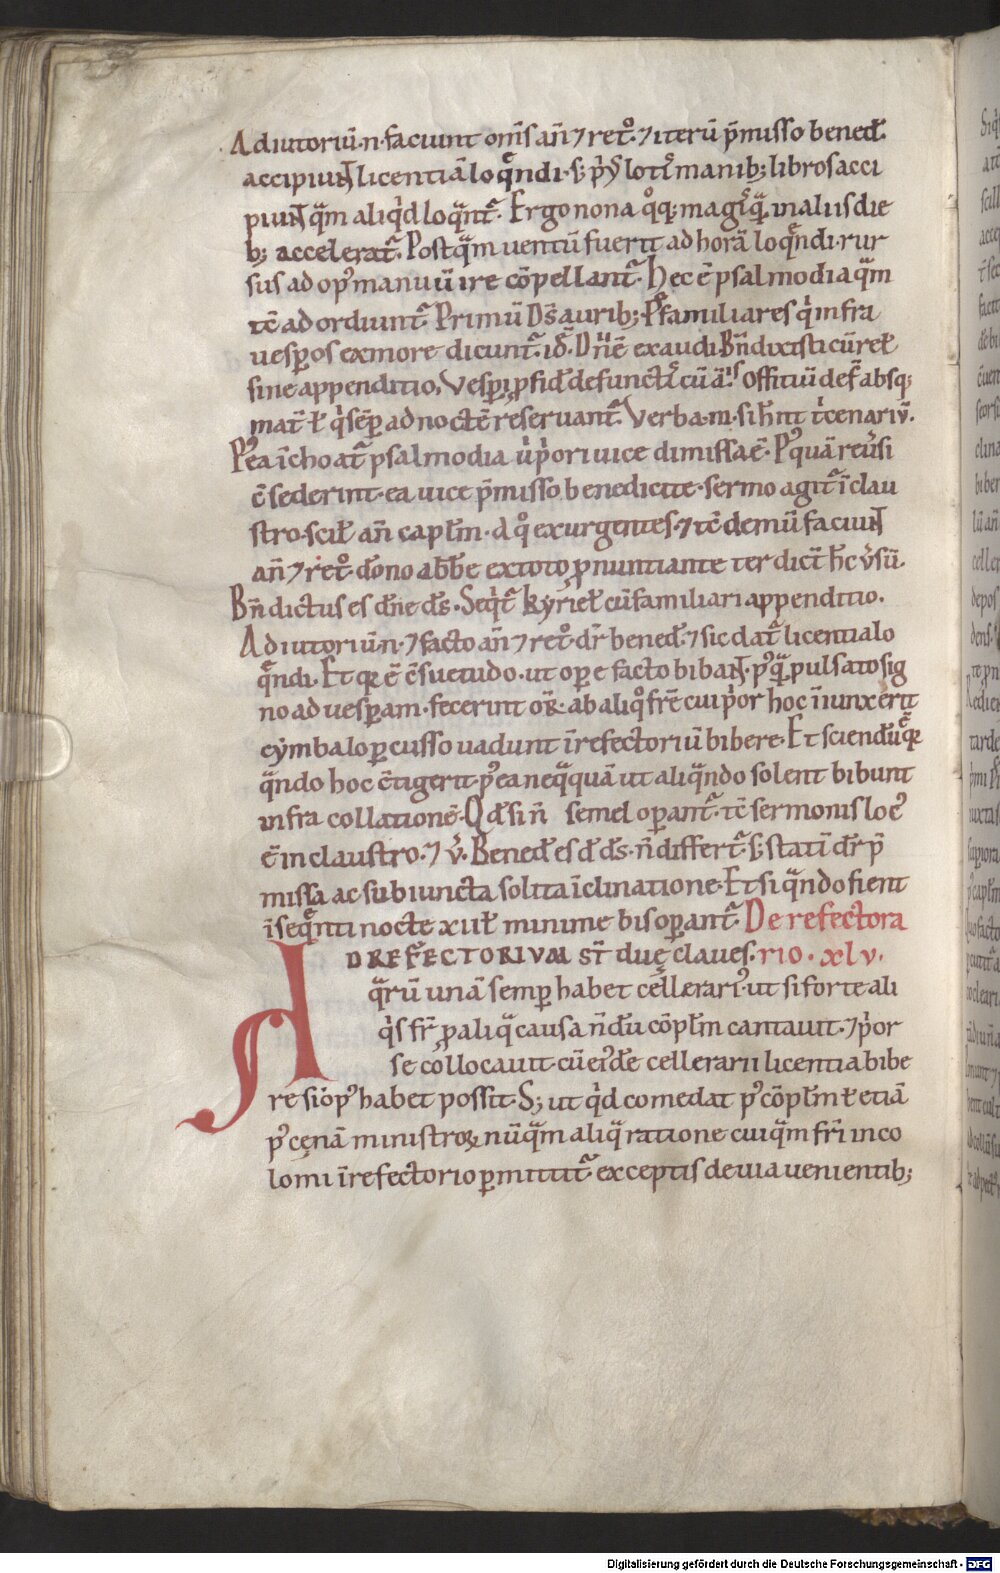 Adiutoriū·n·faciunt om̄s an̄ ⁊ ret᷒·⁊ iterū p̄misso bened̄·
accipiunt licentiā loqͣndi·s; p͛ lotꝭ manib; libros acci
piunt qͣm aliqͥd loqͣnt᷑· Ergo nona qͦq; magꝭ qͣ in aliis die
b; accelerat᷑· Postqͣm uentū fuerit ad horā loqͣndi·rur
sus ad op᷒ manuū ire cōpellant᷑· Hec ē psalmodia qͣm
tc̄ ad ordiunt᷑· Primū Dn̄s aurib;· P familiares qͥ infra
uesꝑos ex more dicunt᷑·id̄· Dn̄e exaudi· Bn̄dixisti cū rel̄
sine appenditio, Vesꝑi ꝓ fid̄ defunctꝭ cū ā· Offitiū def̄ absq;
mat̄ ł qͥ sēꝑ ad noctē reseruant᷑· Verba·m·si hn̄t tͥcenariū·
P᷒ea īchoat᷑ psalmodia ù pͥori uice dimissa ē· P᷒quā reuͥsi
c̄sederint·ea uice p̄misso benedicite·sermo agit᷑ ī clau
stro·scil̄ an̄ capl̄m·A qͦ exurgentes·⁊ tc̄ demū faciunt
an̄ ⁊ ret᷒· dōno abb̄e ex toto ꝓnuntiante ter dict̄ hc̄ uͥsū·
Bn̄dictus es dn̄e ds̄· Seqͥt᷑ kyriel̄ cū familiari appenditio·
Adiutoriū·n·⁊ facto an̄ ⁊ ret᷒· dr̄ bened̄·⁊ sic dat᷑ licentia lo
qͣndi· Et qr̄ ē c̄suetudo·ut oꝑe facto bibant·p᷒qͣ pulsato sig
no ad uesꝑam·fecerint or̄· ab aliqͦ fr̄e cui pͥor hoc iniunxerit
cymbalo ꝑcusso uadunt ī refectoriū bibere· Et sciendū qr̄
qͣndo hoc c̄tigerit·p᷒ea neqͣquā ut aliqͣndo solent bibunt
infra collationē· Qd̄ si n̄ semel oꝑant᷑·tc̄ sermonis loc᷒
ē in claustro·⁊ v̄· Bened̄ es d̄ ds̄·n̄ differt᷑·s; statī dr̄ p̄
missa ac subiuncta solita īclinatione· Et si qͣndo fient
ī seqͣnti nocte xii l̄ minime bis oꝑant᷑· De refectora
AD REFECTORIVM sт̄ duę claues· rio · xlv·
qͣrū unā semꝑ habet cellerari᷒·ut si forte ali
qͥs fr̄ ꝓ aliqͣ causa n̄dū cōpl̄m cantauit·⁊ pͥor
se collocauit·cū ei᷒dē cellerarii licentia bibe
re si op᷒ habet possit· S; ut qͥd comedat p᷒ cōpl̄m ł etiā
p᷒ cęnā ministroꝝ·nūqͣm aliqͣ ratione cuiqͣm fr̄i inco
lomi ī refectorio ꝑmittit᷑·exceptis de uia uenientib;
Digitalisierung gefördert durch die Deutsche Forschungsgemeinschaft - DFG